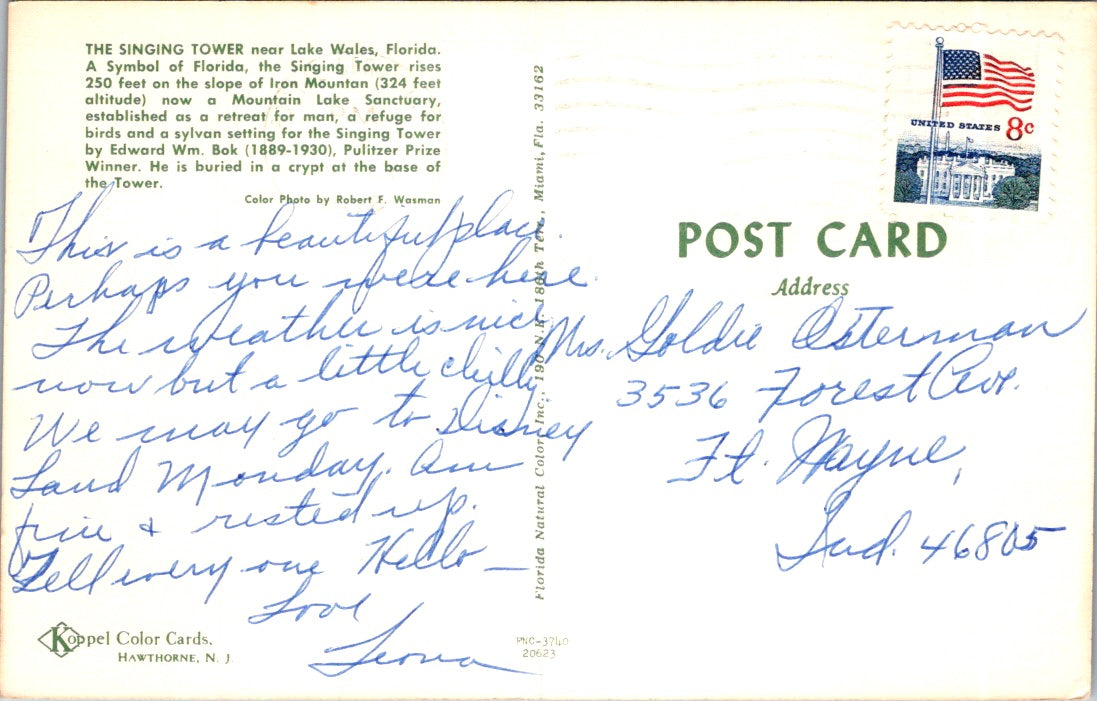 THE SINGING TOWER near Lake Wales, Florida.
A Symbol of Florida, the Singing Tower rises
250 feet on the slope of Iron Mountan (324 feet
altitude) now a Mountain Lake Sanctuary,
established as a retreat for man, a refuge for
birds and a sylvan setting for the Singing Tower
by Edward Wm. Bok (1889-1930), Pulitzer Prize
Winner. He is buried in a crypt at the base of
the Tower.
Color Photo by Robert F. Wasman
This is a beautiful place.
Perhaps you were here.
The weather is nice
now but a little chilly
We may go to Disney
Land Monday. Am
fine & rested up.
Tell every one Hello —
Love
Leona
Koppel Color Cards.
HAWTHORNE, N. J.
PNC-3740
20623
Florida Natural Color, Inc., 190 N.E. 186th Terr., Miami, Fla. 33162
UNITED STATES 8c
POST CARD
Address
Mrs. Goldie Osterman
3536 Forest Ave.
Ft. Wayne,
Ind. 46805